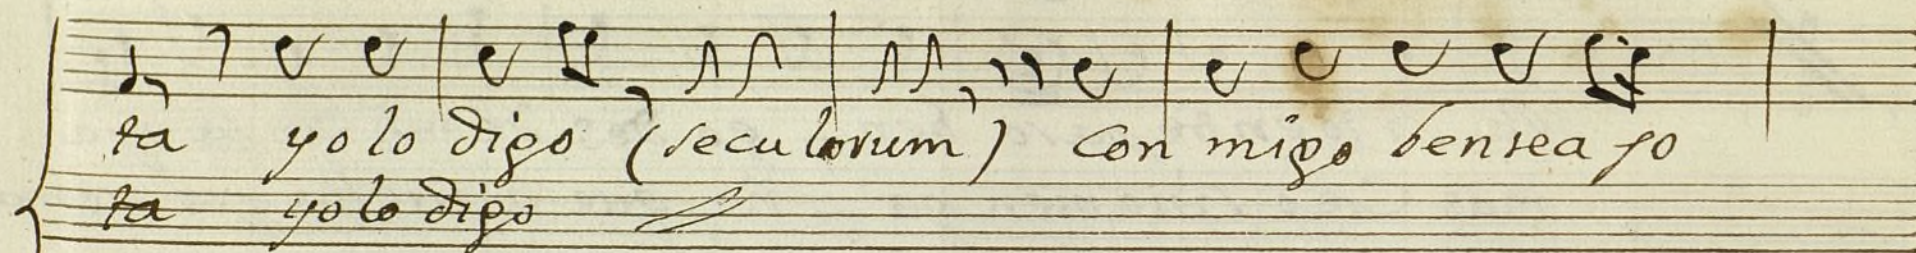 ta yo lo digo (seculorum) Con migo ben sea so
ta yo lo digo